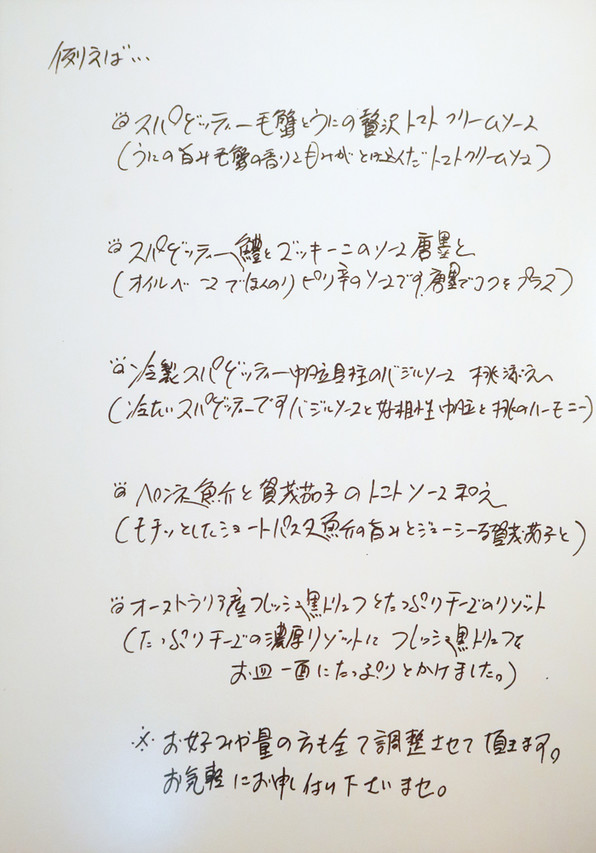 例えば…
スパゲッティー毛蟹とうにの贅沢トマトクリームソース
(うにの旨み毛蟹の香りと旨みがとけ込んだトマトクリームソース)
スパゲッティー鱧とズッキーニのソース唐墨と
(オイルベースでほんのりピリ辛のソースです。唐墨でコクをプラス)
冷製スパゲッティー帆立貝柱のバジルソース 桃添え
(冷たいスパゲッティーですバジルソースと好相性帆立と桃のハーモニー)
ペンネ魚介と賀茂茄子のトマトソース和え
(モチッとしたショートパスタ魚介の旨みとジューシーな賀茂茄子と)
オーストラリア産フレッシュ黒トリュフとたっぷりチーズのリゾット
(たっぷりチーズの濃厚リゾットに フレッシュ黒トリュフを
お皿一面にたっぷりとかけました。)
※ お好みや量の方も全て調整させて頂きます。
お気軽にお申し付け下さいませ。